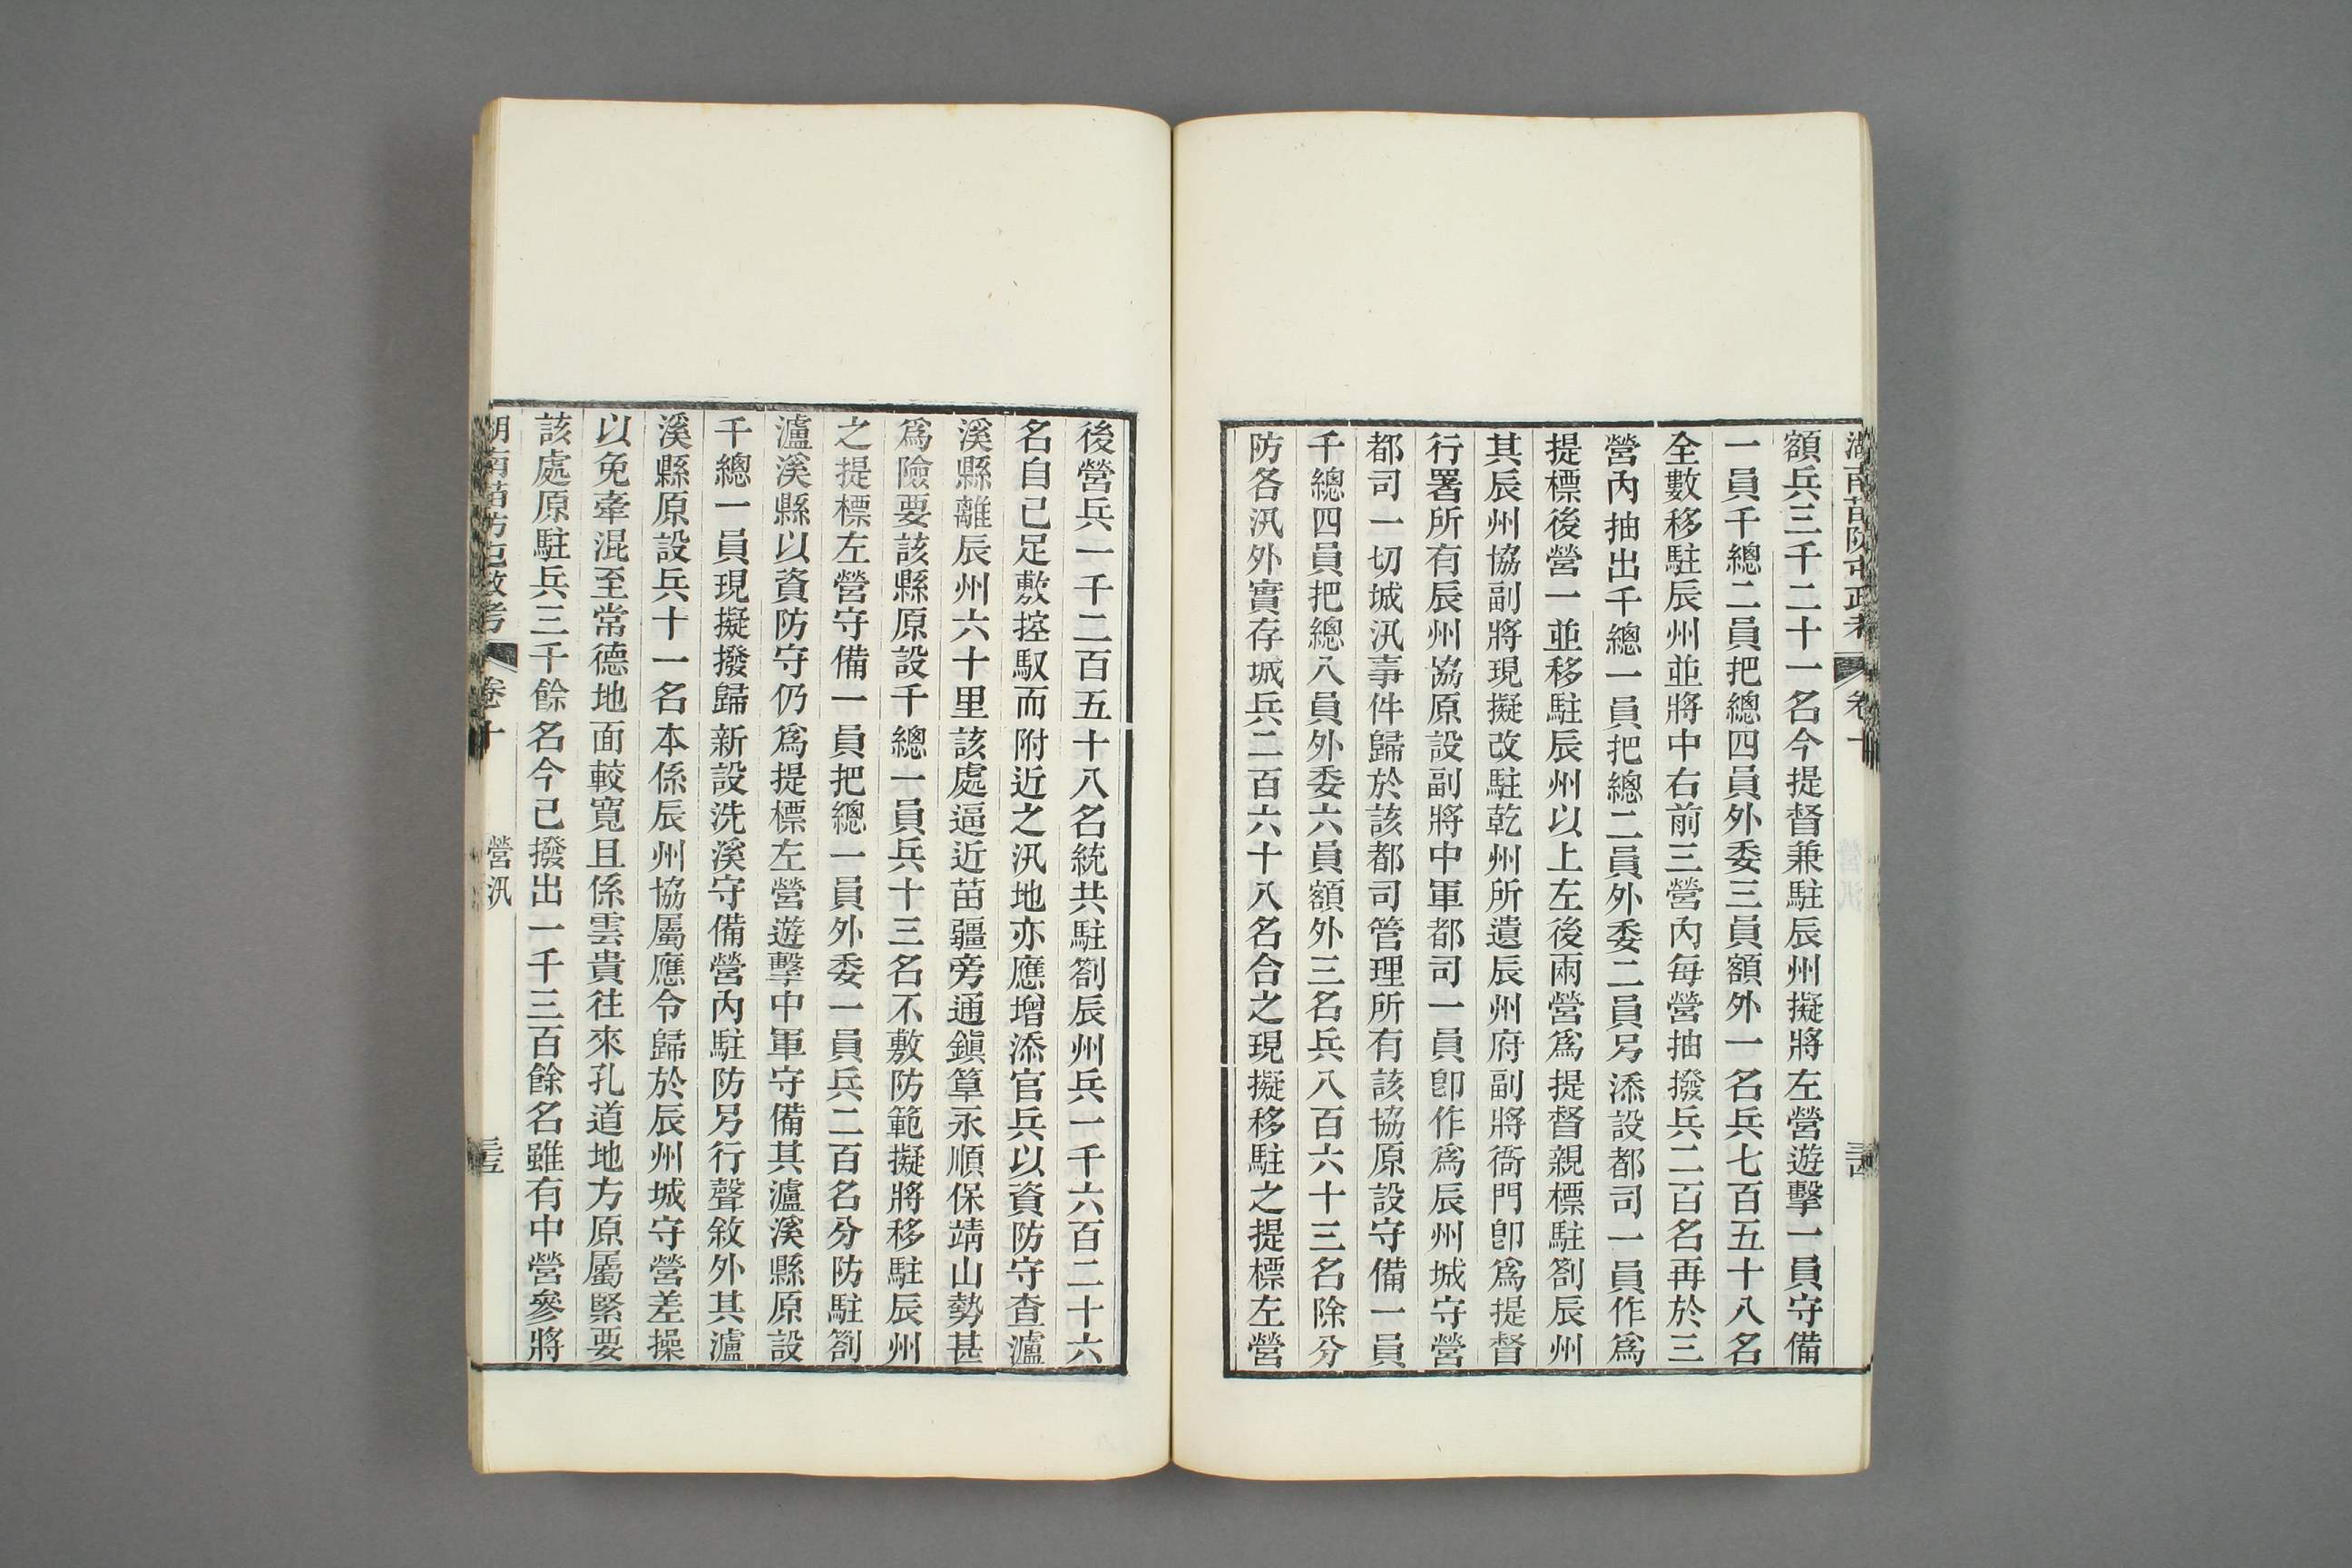 湖南苗防屯政考 卷十 三十四
額兵三千二十一名今提督兼駐辰州擬將左營遊擊一員守備
一員千總二員把總四員外委三員額外一名兵七百五十八名
全數移駐辰州並將中右前三營內每營抽撥兵二百名再於三
營內抽出千總一員把總二員外委二員另添設都司一員作爲
提標後營一並移駐辰州以上左後兩營爲提督親標駐劄辰州
其辰州協副將現擬改駐乾州所遺辰州府副將衙門卽爲提督
行署所有辰州協原設副將中軍都司一員卽作爲辰州城守營
都司一切城汛事件歸於該都司管理所有該協原設守備一員
千總四員把總八員外委六員額外三名兵八百六十三名除分
防各汛外實存城兵二百六十八名合之現擬移駐之提標左營
後營兵一千二百五十八名統共駐劄辰州兵一千六百二十六
名自己足敷控馭而附近之汛地亦應增添官兵以資防守查瀘
溪縣離辰州六十里該處逼近苗疆旁通鎭筸永順保靖山勢甚
爲險要該縣原設千總一員兵十三名不敷防範擬將移駐辰州
之提標左營守備一員把總一員外委一員兵二百名分防駐劄
瀘溪縣以資防守仍爲提標左營遊擊中軍守備其瀘溪縣原設
千總一員現擬撥歸新設洗溪守備營內駐防另行聲敘外其瀘
溪縣原設兵十一名本係辰州協屬應令歸於辰州城守營差操
以免牽混至常德地面較寬且係雲貴往來孔道地方原屬緊要
該處原駐兵三千餘名今己撥出一千三百餘名雖有中營參將
湖南苗防屯政考 卷十 營汛 三十五